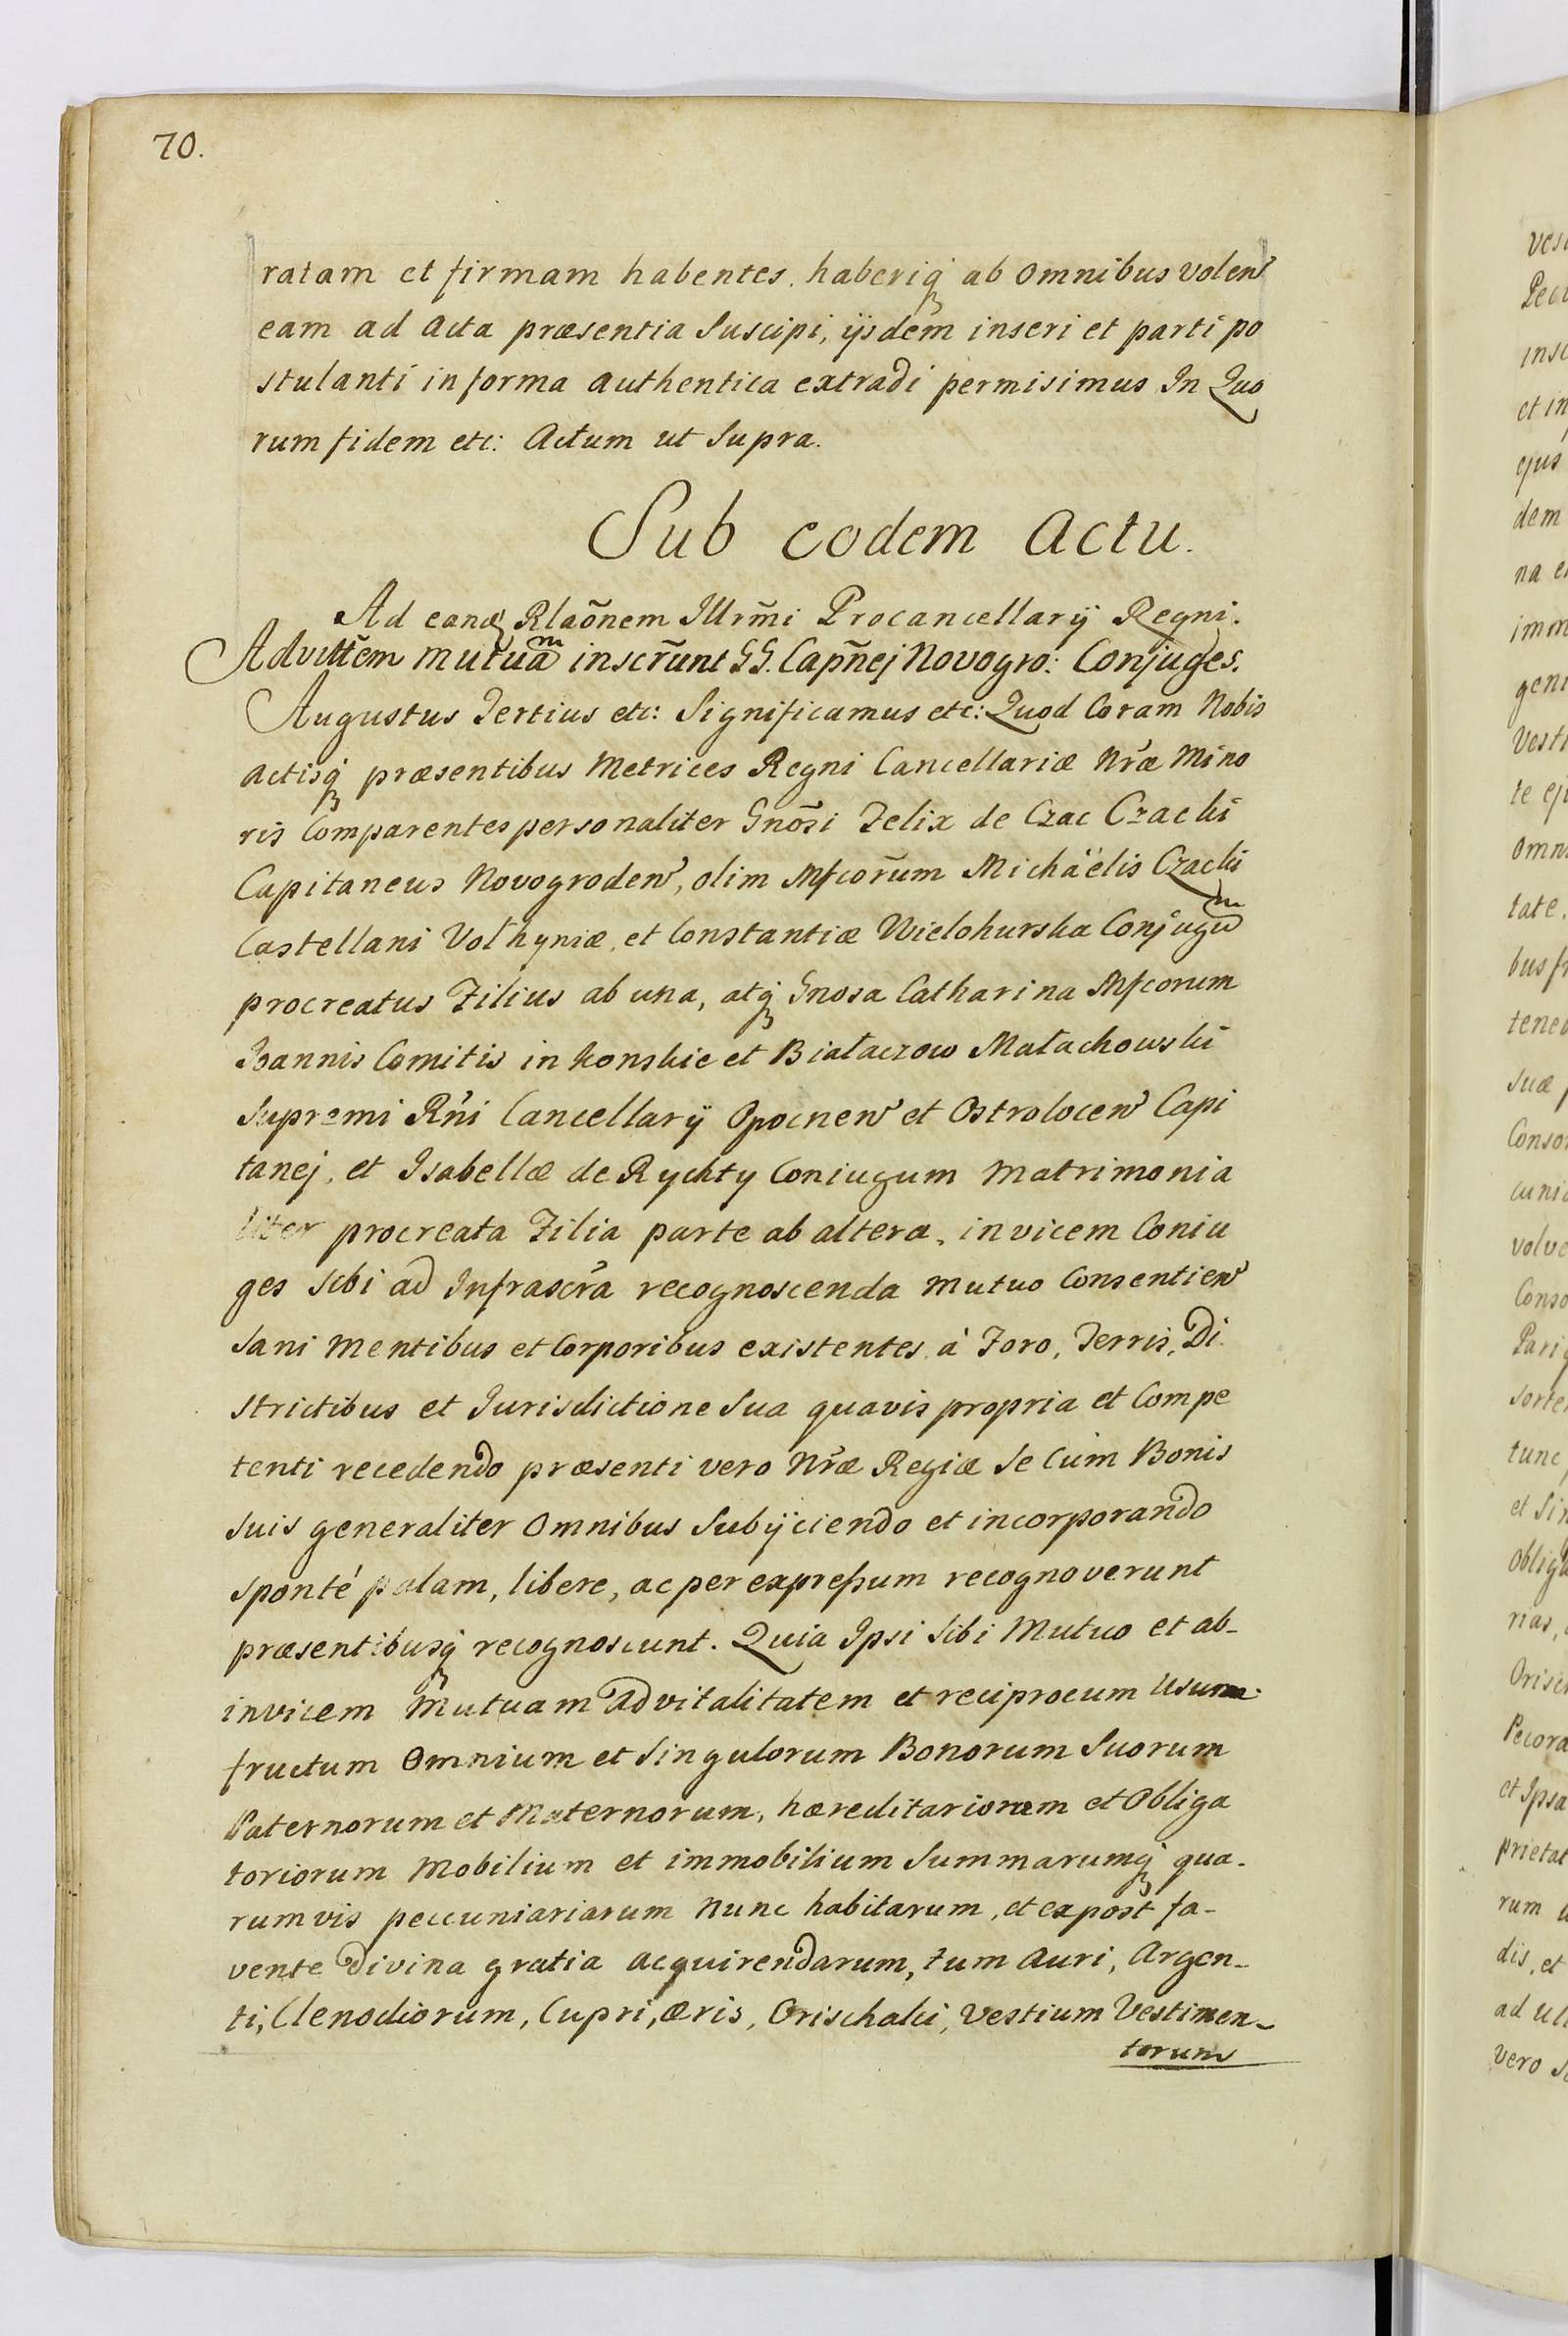 70.
ratam et firmam habentes. haberiq̃ ab omnibus volen
eam ad acta præsentia suscipi, ijsdem inseri et parti po
stulanti in forma authentica extradi permisimus In Quo
rum fidem etc: Actum ut supra.
Sub eodem Actu.
Ad eandẽ Rlaõnem Illrm̃i Procancellarÿ Regni.
Advittẽm mutuãm inscr̃unt GG. Capñej Novogro: Conjuges.
Augustus Tertius etc: Significamus etc: Quod Coram Nobis
actisq̃ præsentibus Metrices Regni Cancellariæ Nræ Mino
ris Comparentes personaliter Gnõsi Felix de Czac Czacki
Capitaneus Novogroden, olim Mfcorũm Michäelis Czacki
Castellani Volhyniæ, et Constantiæ Wielohurska Conjugum
procreatus Filius ab una, atq̃ Gnosa Catharina Mfcorum
Joannis Comitis in Konskie et Białaczow Małachowski
Supremi Rñi Cancellarÿ Opocnen et Ostrolocen Capi
tanej, et Isabellæ de Rychty Coniugum Matrimonia
liter procreata Filia parte ab altera, invicem Coniu
ges sibi ad Infrascra recognoscenda mutuo Consentien
Sani Mentibus et Corporibus existentes à Foro, Terris, Di
strictibus et Jurisdictione Sua quavis propria et Compe
tenti recedendo præsenti vero Nræ Regiæ se Cum Bonis
suis generaliter omnibus Subÿciendo et incorporando
sponté palam, libere, ac per expreßum recognoverunt
præsentibusq̃ recognoscunt. Quia Ipsi sibi Mutuo et ab-
invicem Mutuam advitalitatem et reciprocum Usum-
fructum Omnium et Singulorum Bonorum Suorum
Paternorum et Maternorum, hæreditariorum et Obliga
toriorum Mobilium et immobilium Summarumq̃ qua-
rumvis peccuniariarum nunc habitarum, et expost fa-
vente Divina gratia acquirendarum, tum Auri, Argen-
ti, Clenodiorum, Cupri, æris, Orischalci, Vestium Vestimen-
torum
Pecora
et Ipsa
prietat
dis, et